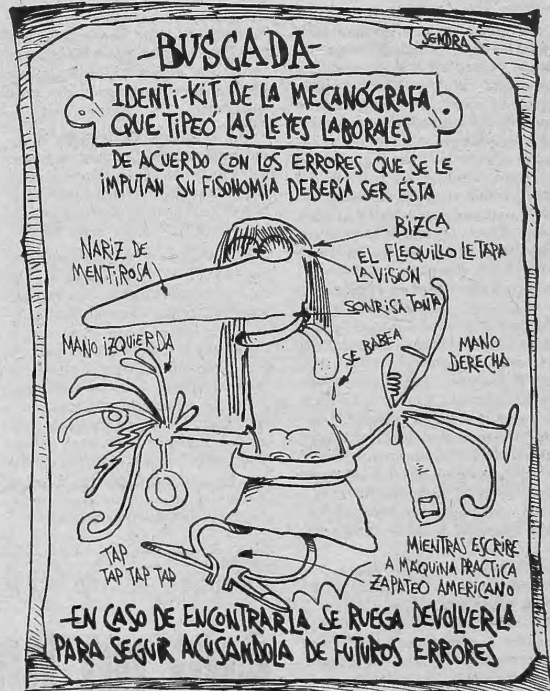 SENDRA
-BUSCADA-
IDENTI-KIT DE LA MECANÓGRAFA
QUE TIPEÓ LAS LEYES LABORALES
DE ACUERDO CON LOS ERRORES QUE SE LE
IMPUTAN SU FISONOMÍA DEBERÍA SER ÉSTA
NARIZ DE
MENTIROSA
BIZCA
EL FLEQUILLO LE TAPA
LA VISIÓN
SONRISA TONTA
MANO IZQUIERDA
SE BABEA
MANO
DERECHA
TAP
TAP TAP TAP
MIENTRAS ESCRIBE
A MÁQUINA PRACTICA
ZAPATEO AMERICANO
-EN CASO DE ENCONTRARLA SE RUEGA DEVOLVERLA
PARA SEGUIR ACUSÁNDOLA DE FUTUROS ERRORES